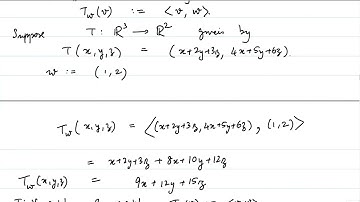 T_w(v) := ⟨v, w⟩.
Suppose T : ℝ³ → ℝ² given by
T(x,y,z) = (x+2y+3z, 4x+5y+6z)
w := (1,2)
T_w(x,y,z) = ⟨(x+2y+3z, 4x+5y+6z), (1,2)⟩
= x+2y+3z + 8x+10y+12z
T_w(x,y,z) = 9x+12y+15z